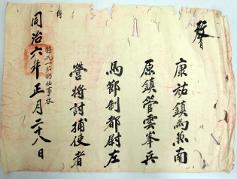 教
康祐鎮爲兼南
原鎮管雲峯兵
馬節制都尉左
營將討捕使者
同治六年正月二十八日